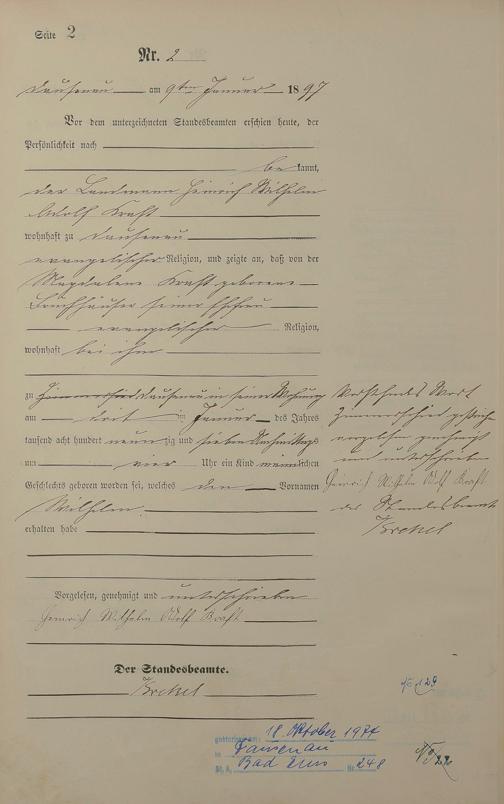 Seite 2
Nr. 2
Dausenau am 9ten Januar 1897
Vor dem unterzeichneten Standesbeamten erschien heute, der
Persönlichkeit nach
be kannt,
der Landmann Heinrich Wilhelm
Adolf Kraft
wohnhaft zu Dausenau
evangelischer Religion, und zeigte an, daß von der
Magdalene Kraft geborene
seiner Ehefrau
evangelischer Religion,
wohnhaft bei ihm
zu Zimmerschied Dausenau in seiner Wohnung
am drit ten Januar des Jahres
tausend acht hundert neun zig und sieben Nachmittags
um vier Uhr ein Kind männlichen
Geschlechts geboren worden sei, welches den Vornamen
Wilhelm
erhalten habe
Vorgelesen, genehmigt und unterschrieben
Heinrich Wilhelm Adolf Kraft
Der Standesbeamte.
Vorstehendes Wort
Zimmerschied gestrichen
vorgelesen genehmigt
und unterschrieben
Heinrich Wilhelm Adolf Kraft
der Standesbeamte
18. Oktober 1977
in Dausenau
Bad Ems Nr. 248